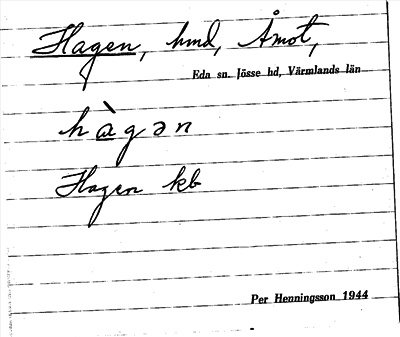 Hagen, hmd, Åmot,
Eda sn. Jösse hd, Värmlands län
hàgən
Hagen kb
Per Henningsson 1944